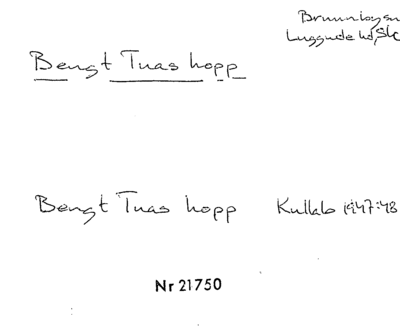 Brunnby sn
Luggude hd, Sk
Bengt Tuas hopp
Bengt Tuas hopp Kullab 1947:43
Nr 21750